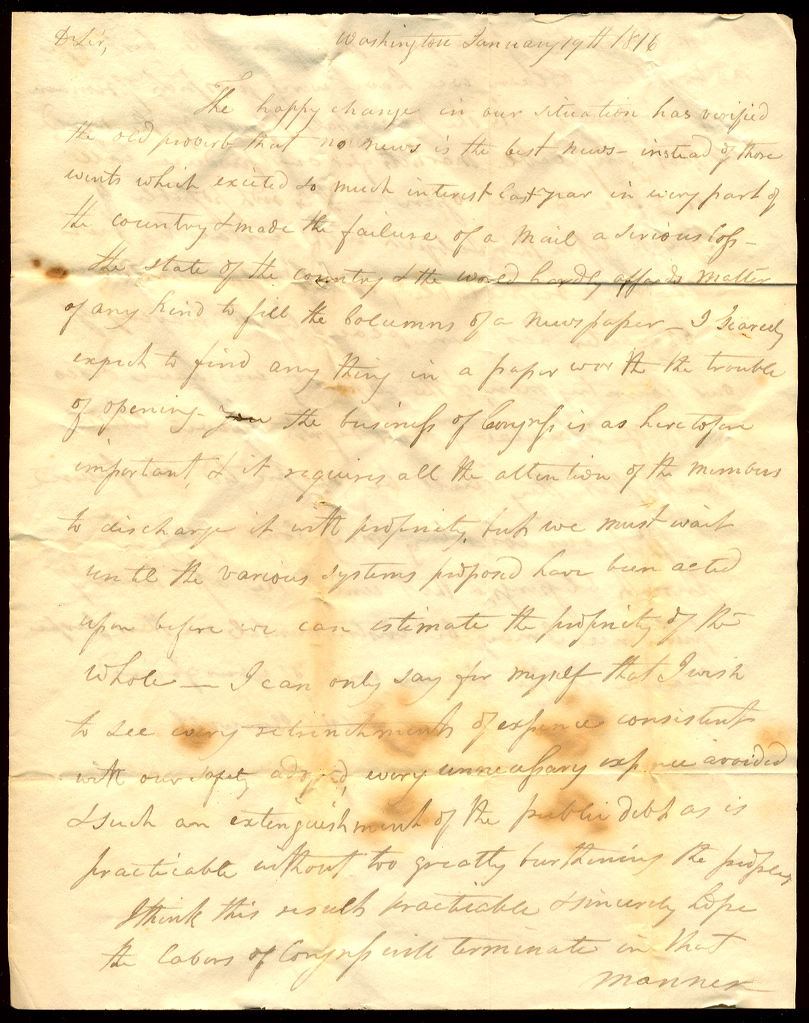 Dr Sir, Washington January 19th 1816
The happy change in our situation has verified
the old proverb that no news is the best news - instead of those
events which excited so much interest last year in every part of
the country & made the failure of a Mail a serious loss -
the state of the country & the world hardly affords matter
of any kind to fill the Columns of a Newspaper - I scarcely
expect to find any thing in a paper worth the trouble
of opening - the business of Congress is as heretofore
important, & it requires all the attention of the members
to discharge it with propriety, but we must wait
until the various systems proposed have been acted
upon before we can estimate the propriety of the
whole - I can only say for myself that I wish
to see every retrenchment of expence consistent
with our safety adopd, every unnecessary expence avoided
& such an extinguishment of the public debt as is
practicable without too greatly burthening the people,
I think this result practicable & sincerely hope
the labors of Congress will terminate in that
manner